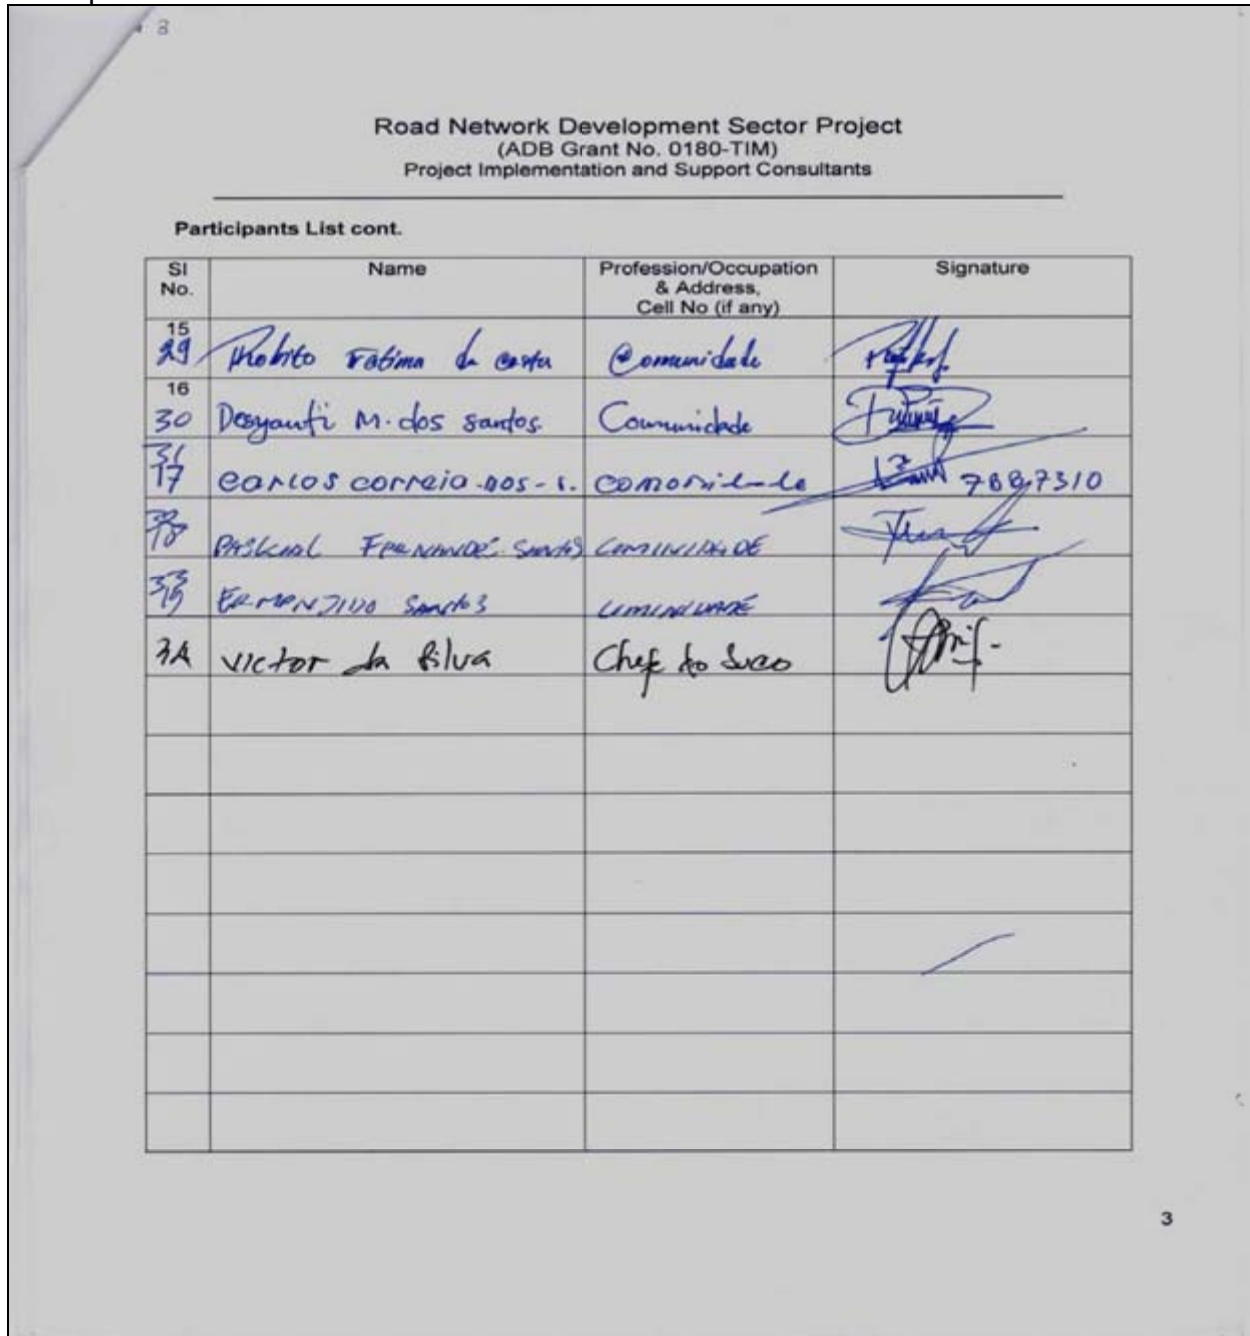 8
Road Network Development Sector Project
(ADB Grant No. 0180-TIM)
Project Implementation and Support Consultants
Participants List cont.
SI No. Name Profession/Occupation & Address, Cell No (if any) Signature
15 29 Fatima da costa Comunidade
16 30 Desyanti M. dos santos Comunidade
31 17 carlos correia dos - s. 7887310
Santos COMINIDADE
33 19 Santos
34 Victor da Silva Chefe do Suco
3